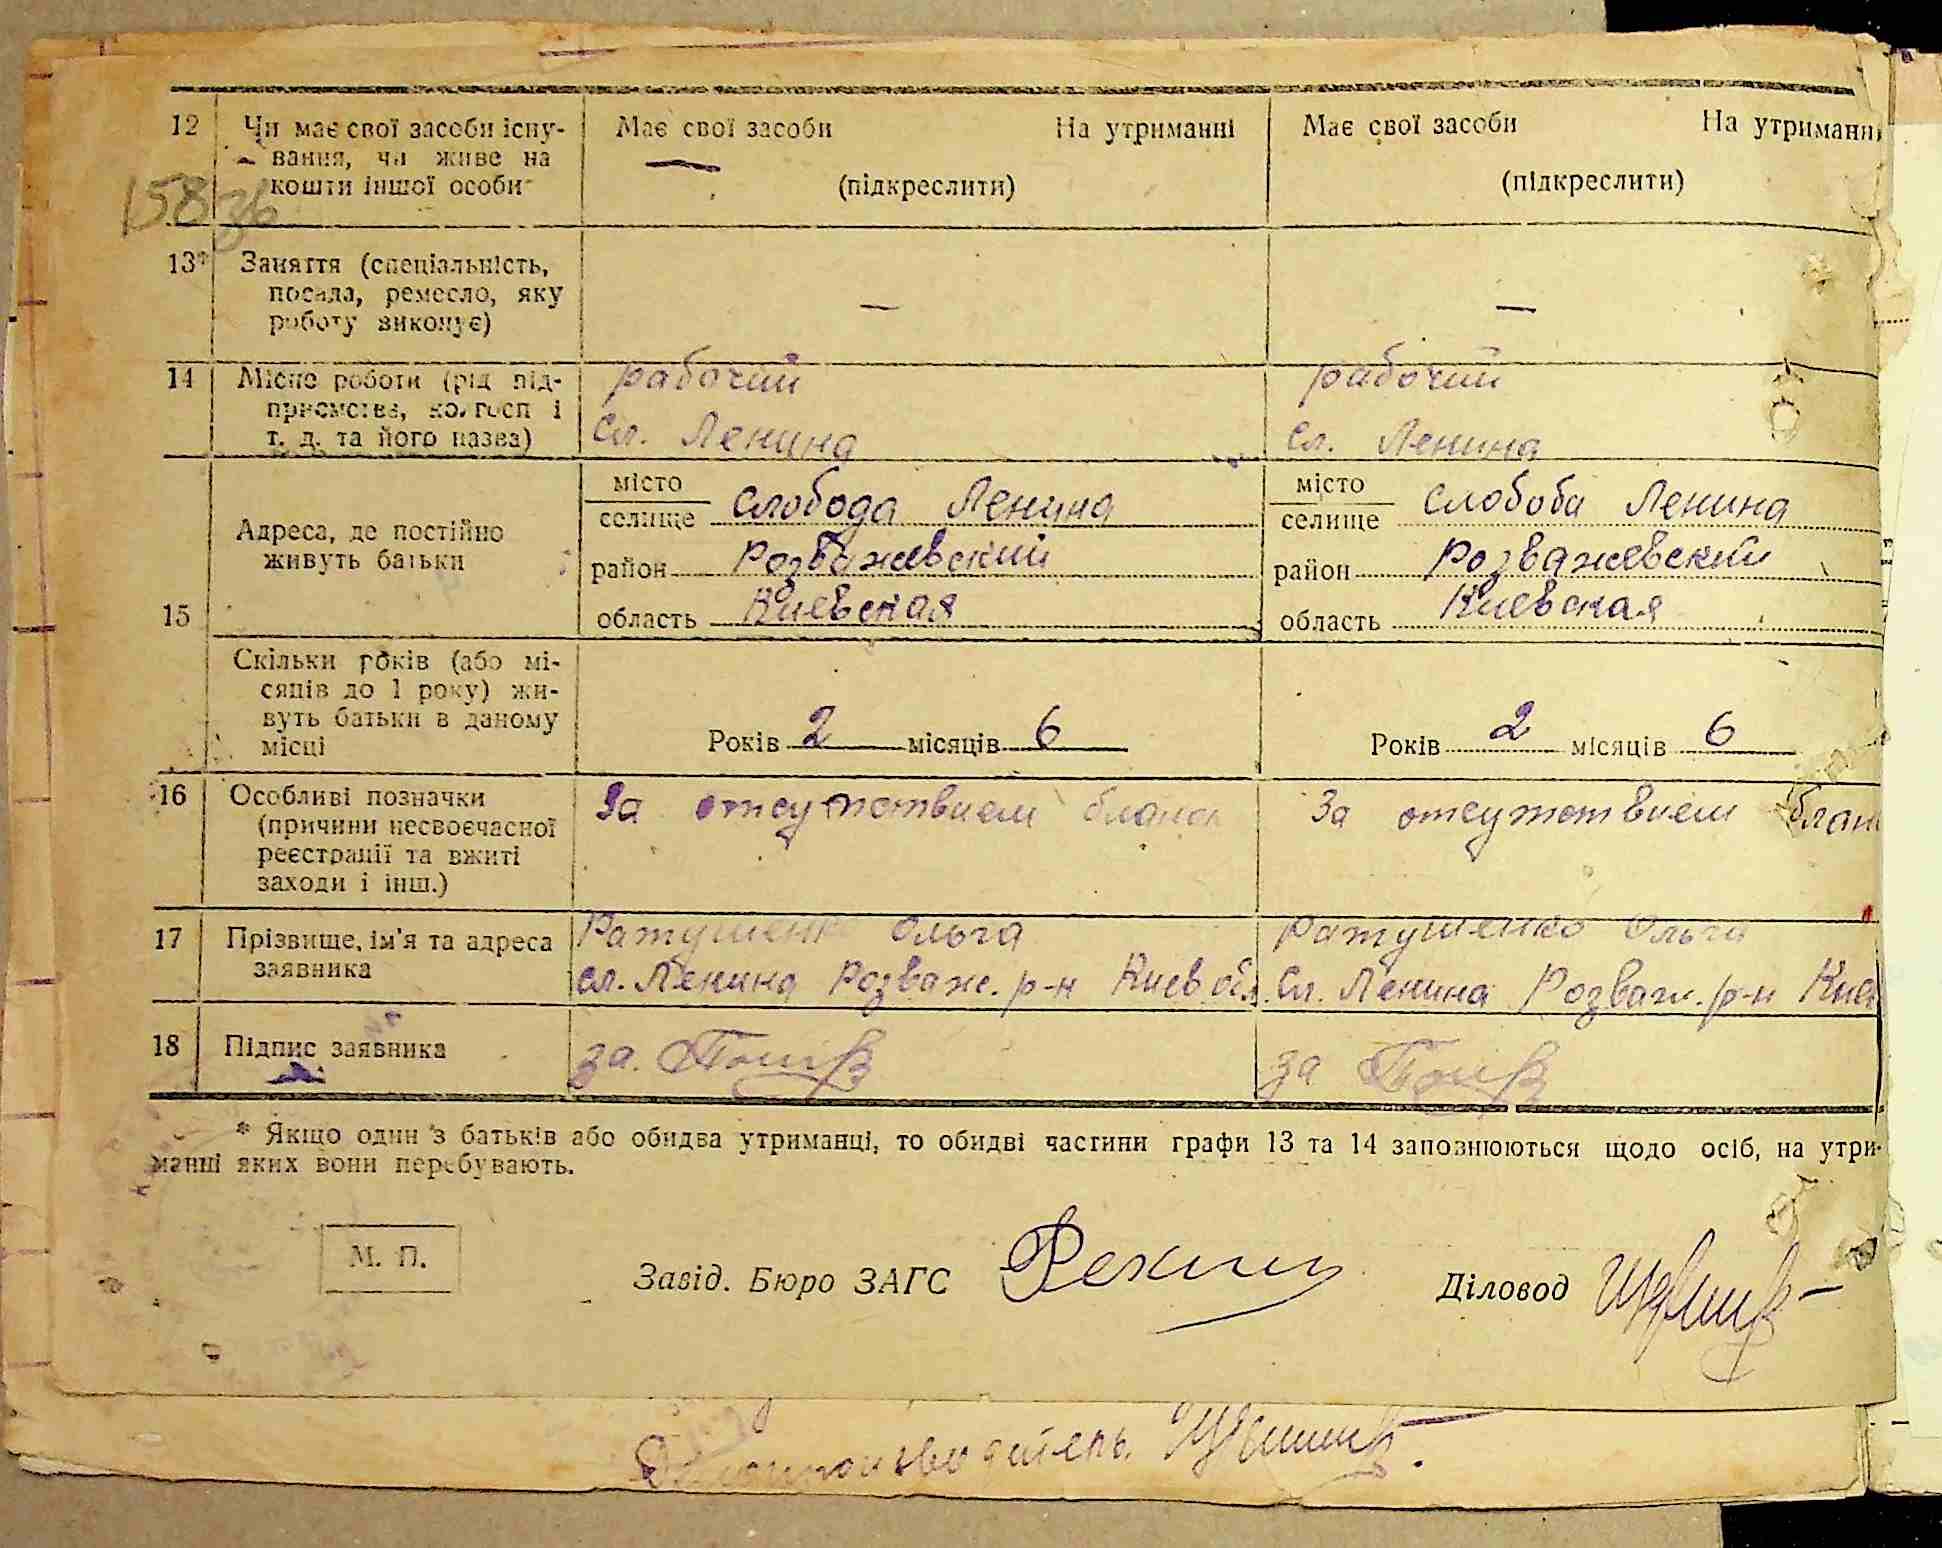 12 Чи має свої засоби існу- Має свої засоби На утриманні Має свої засоби На утриманні
вання, чи живе на
кошти іншої особи (підкреслити) (підкреслити)
15836
13* Заняття (спеціальність,
посада, ремесло, яку — —
роботу виконує)
14 Місце роботи (рід під- рабочий рабочий
приємства, колгосп і
т. д. та його назва) сл. Ленина сл. Ленина
місто місто
селище Слобода Ленина селище Слобоба Ленина
Адреса, де постійно
живуть батьки район Розважевский район Розважевский
15 область Киевская область Киевская
Скільки років (або мі-
сяців до 1 року) жи-
вуть батьки в даному
місці Років 2 місяців 6 Років 2 місяців 6
16 Особливі позначки За отсутствием бланк За отсутствием блан
(причини несвоєчасної
реєстрації та вжиті
заходи і інш.)
17 Прізвище, ім'я та адреса Ратушенк Ольга Ратушенко Ольга
заявника сл. Ленина Розваж. р-н Киев. обл. Сл. Ленина Розваж. р-н Кие
18 Підпис заявника за. за
* Якщо один з батьків або обидва утриманці, то обидві частини графи 13 та 14 заповнюються щодо осіб, на утри-
манні яких вони перебувають.
М. П.
Завід. Бюро ЗАГС Діловод
Делопроизводитель.